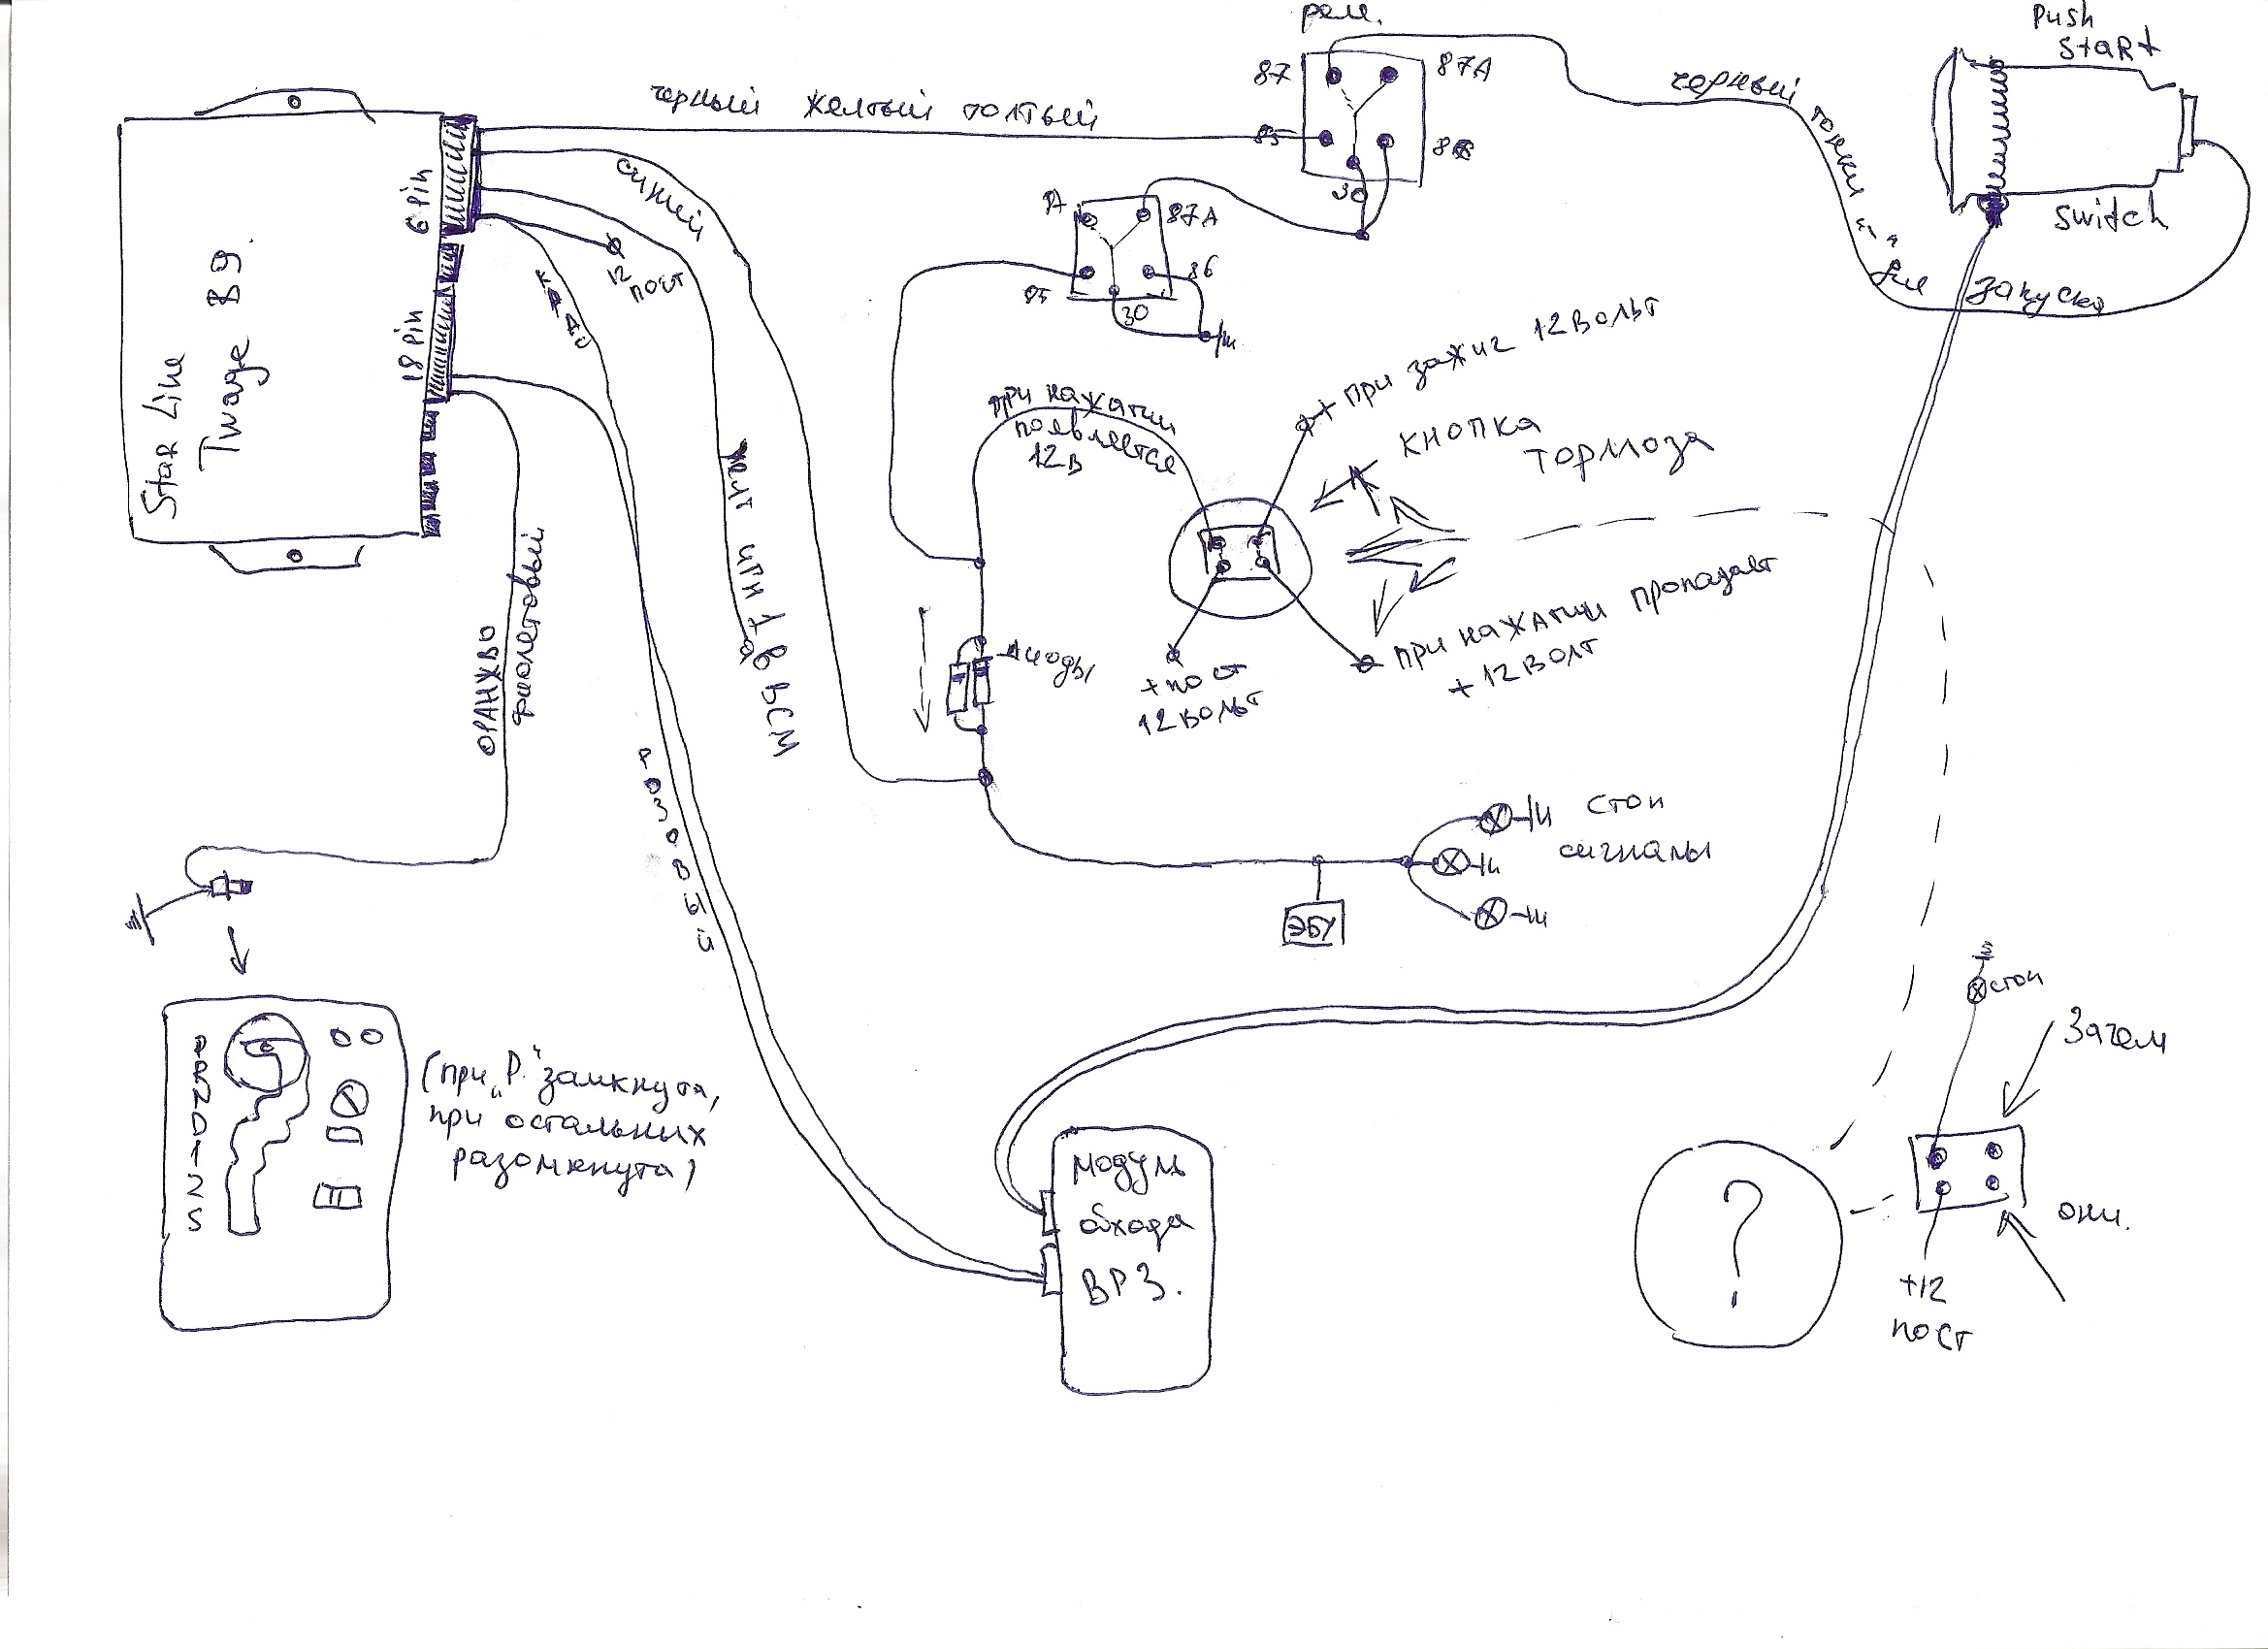 реле.
87
87А
85
30
Push
Start
Switch
черный желтый толтый
черный
тонкий
"-"
для запуска
синий
6 Pin
18 Pin
Star Line
Twage B9.
12 пост
87А
86
85
30
при нажатии
появляется
12в
+ при зажиг 12 Вольт
кнопка
тормоза
при нажатии пропадает
+ 12 Волт
+ пост
12 Вольт
диоды
желт игн 1 в BCM
оранжво
фиолетовый
розовый
стоп
сигналы
ЭБУ
PRND+-2S
(при "P" замкнута,
при остальных
разомкнута)
модуль
обхода
BP3.
?
стоп
Зачем
они.
+12
пост